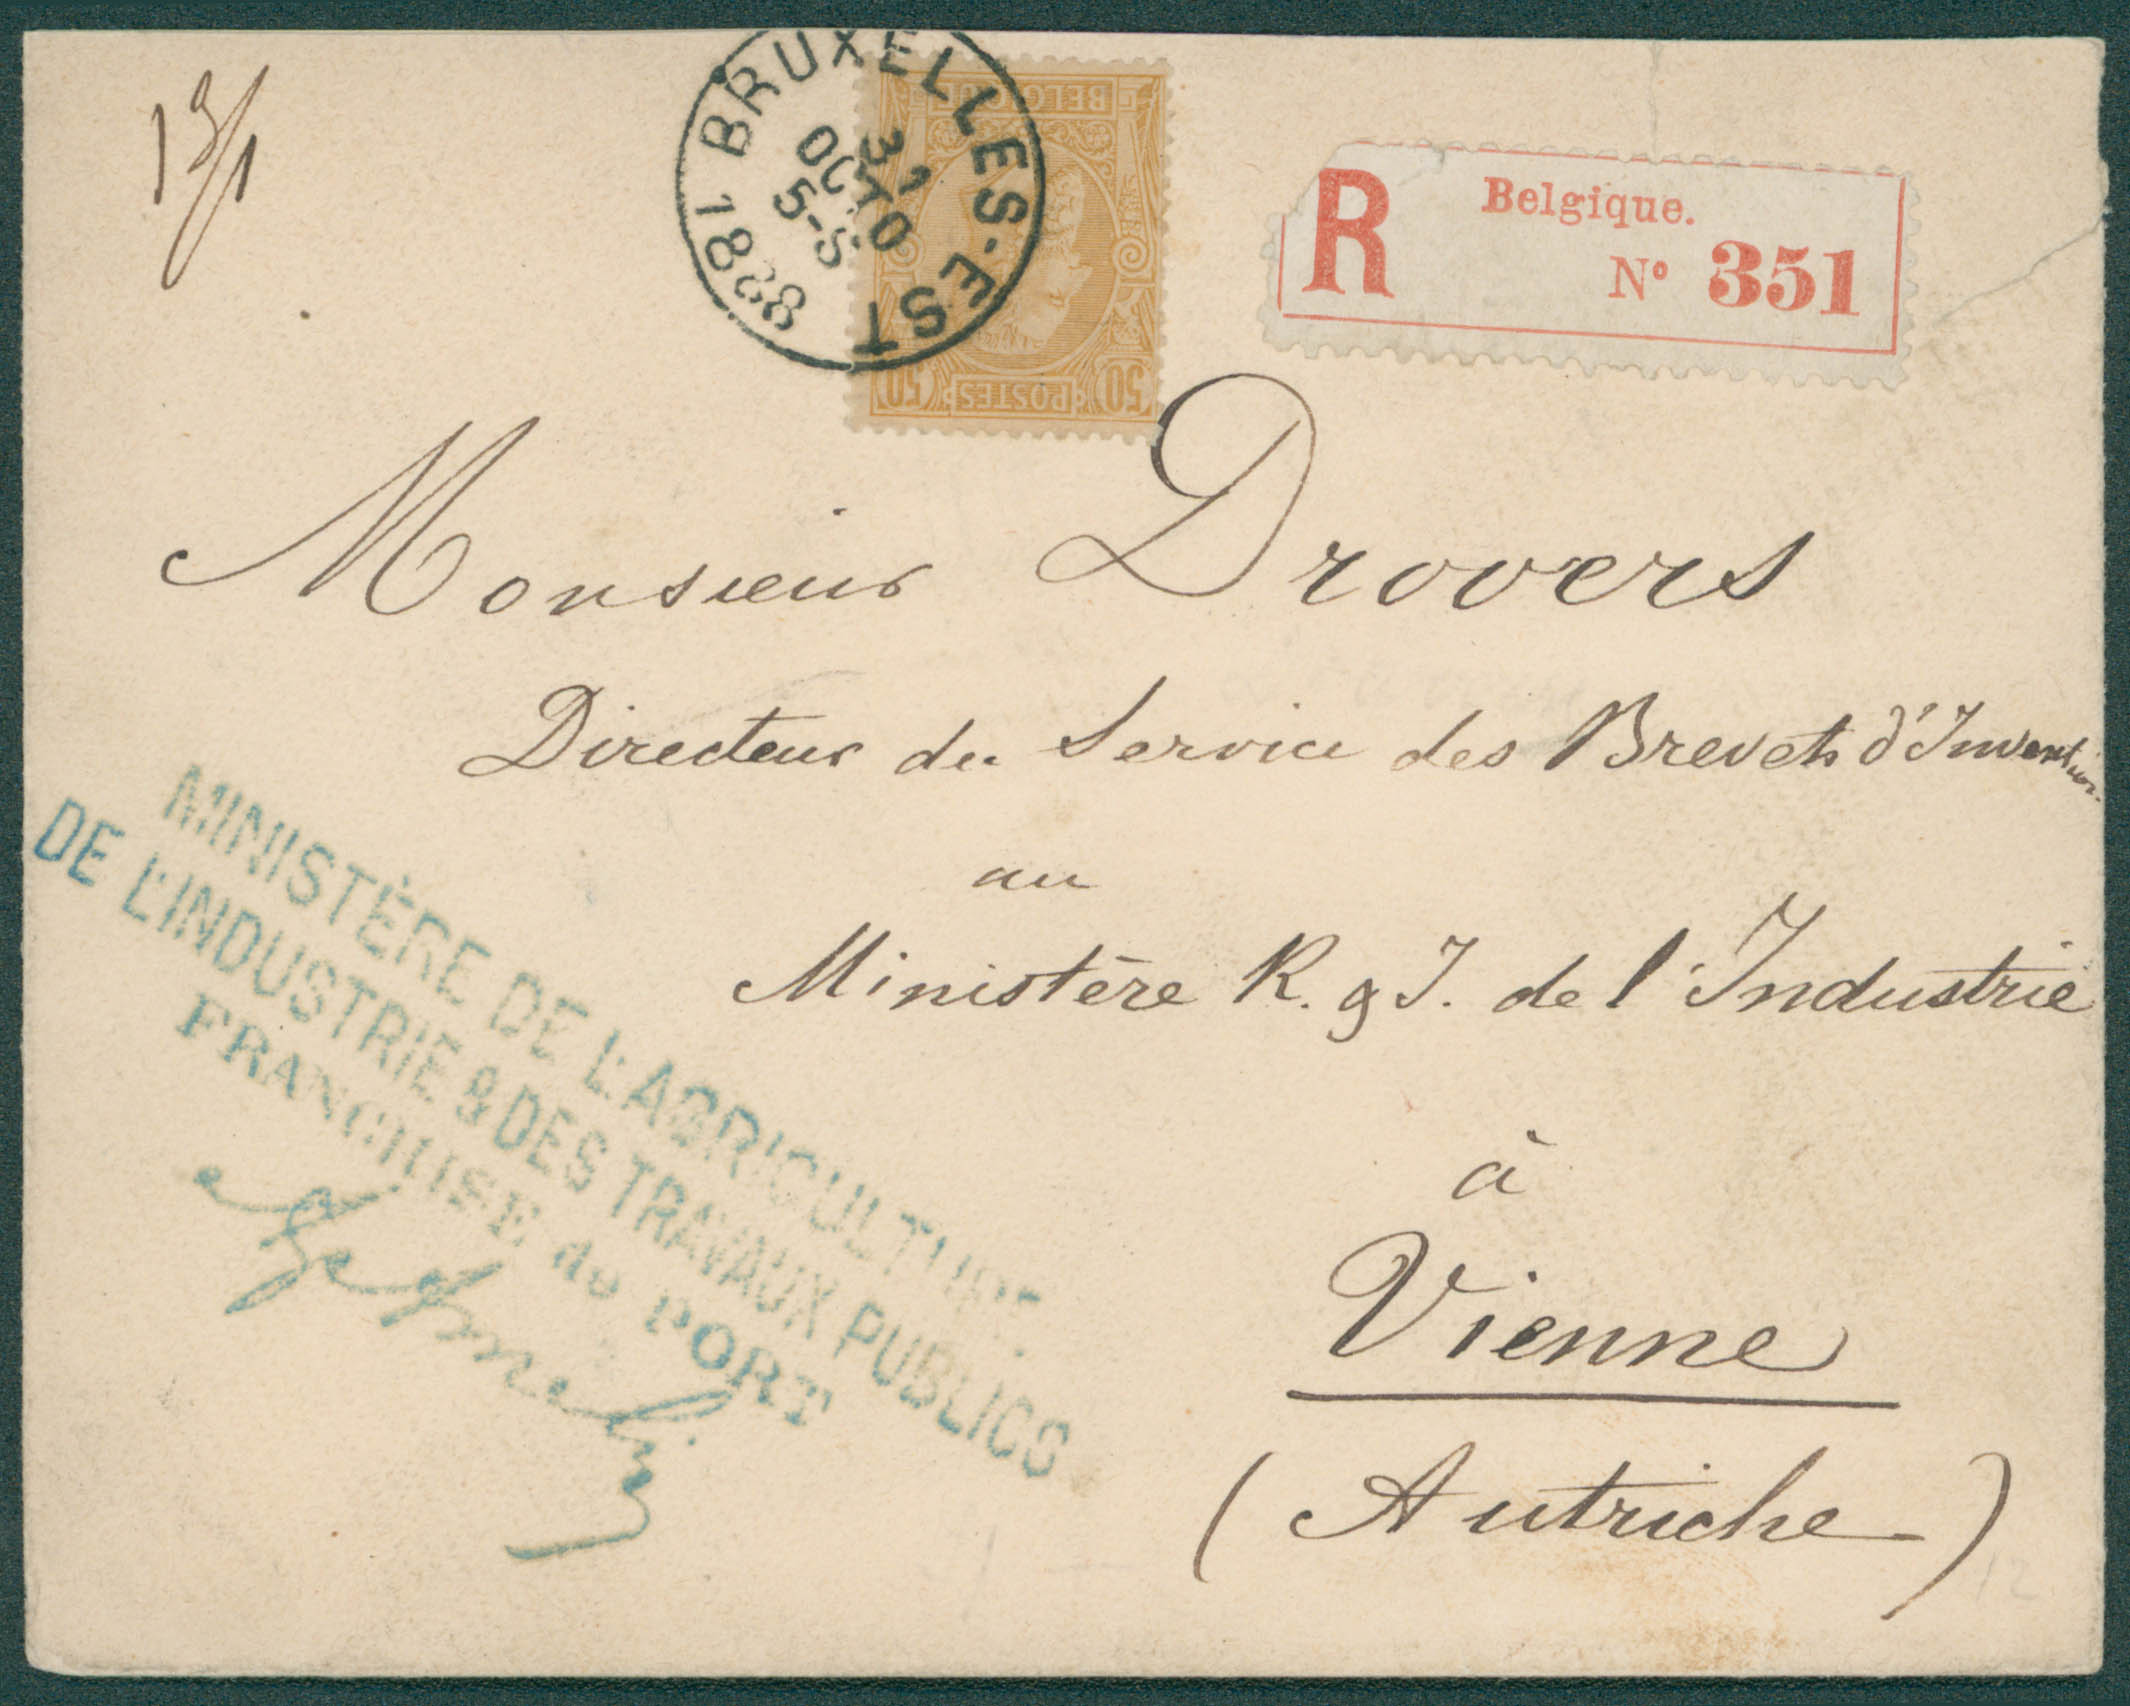 13/1
BRUXELLES-EST
31
OCTO
5-S
1888
BELGIQUE
50 POSTES 50
R Belgique.
N° 351
Monsieur Drovers
Directeur du Service des Brevets d'Invention
au
Ministère R. g J. de l'Industrie
à
Vienne
(Autriche)
MINISTÈRE DE L'AGRICULTURE
DE L'INDUSTRIE & DES TRAVAUX PUBLICS
FRANCHISE de PORT
12